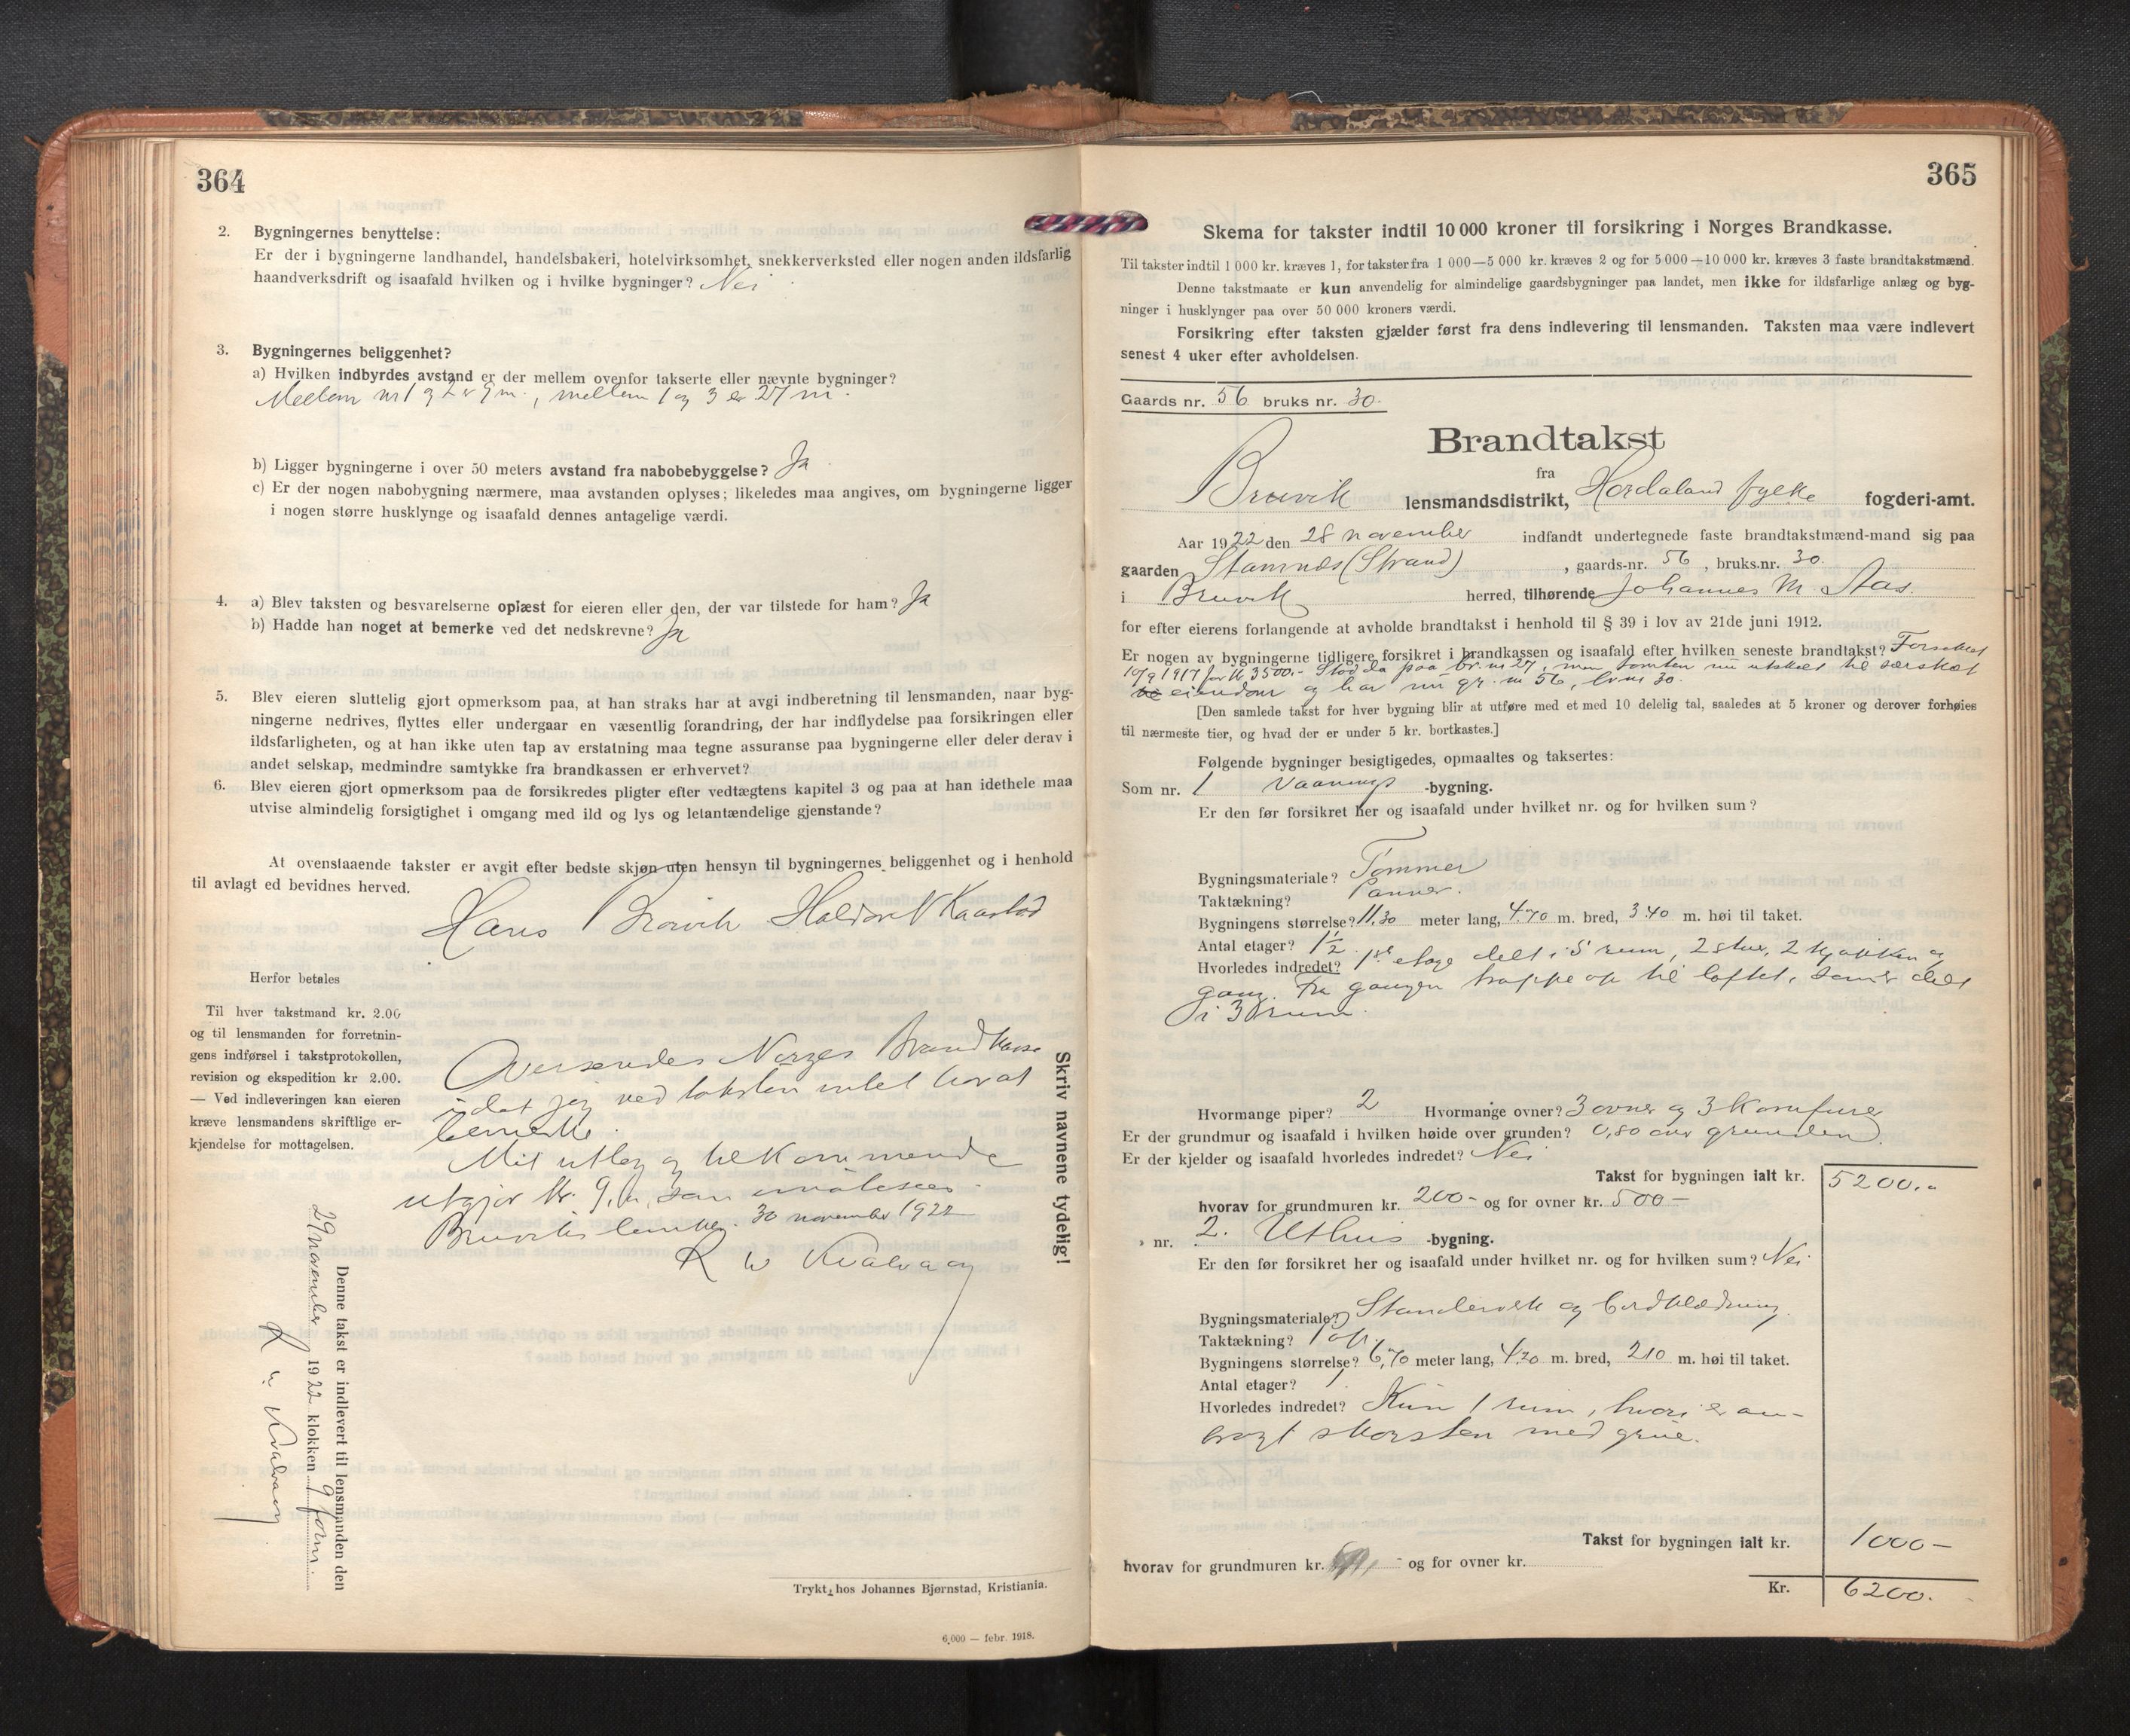 364
2. Bygningernes benyttelse:
Er der i bygningerne landhandel, handelsbakeri, hotelvirksomhet, snekkerverksted eller nogen anden ildsfarlig
haandverksdrift og isaafald hvilken og i hvilke bygninger? Nei
3. Bygningernes beliggenhet?
a) Hvilken indbyrdes avstand er der mellem ovenfor takserte eller nævnte bygninger?
Mellem nr 1 og 2 er 9 m., mellem 1 og 3 er 27 m.
b) Ligger bygningerne i over 50 meters avstand fra nabobebyggelse? Ja
c) Er der nogen nabobygning nærmere, maa avstanden oplyses; likeledes maa angives, om bygningerne ligger
i nogen større husklynge og isaafald dennes antagelige værdi.
4. a) Blev taksten og besvarelserne oplæst for eieren eller den, der var tilstede for ham? Ja
b) Hadde han noget at bemerke ved det nedskrevne? Ja
5. Blev eieren sluttelig gjort opmerksom paa, at han straks har at avgi indberetning til lensmanden, naar byg-
ningerne nedrives, flyttes eller undergaar en væsentlig forandring, der har indflydelse paa forsikringen eller
ildsfarligheten, og at han ikke uten tap av erstatning maa tegne assuranse paa bygningerne eller deler derav i
andet selskap, medmindre samtykke fra brandkassen er erhvervet?
6. Blev eieren gjort opmerksom paa de forsikredes pligter efter vedtægtens kapitel 3 og paa at han idethele maa
utvise almindelig forsigtighet i omgang med ild og lys og letantændelige gjenstande?
At ovenstaaende takster er avgit efter bedste skjøn uten hensyn til bygningernes beliggenhet og i henhold
til avlagt ed bevidnes herved.
Hans Bruvik Haldor N Kaastad
Herfor betales
Til hver takstmand kr. 2.00
og til lensmanden for forretnin-
gens indførsel i takstprotokollen,
revision og ekspedition kr 2.00.
— Ved indleveringen kan eieren
kræve lensmandens skriftlige er-
kjendelse for mottagelsen.
Oversendes Norges Brandkasse
idet jeg ved taksten intet har at
bemerke.
Mit utlæg og tilkommende
utgjør kr. 9, som
Bruvik 30 november 1922
R W Kvalvaag
Skriv navnene tydelig!
Denne takst er indlevert til lensmanden den
29 november 1922 klokken 9 form.
R W Kvalvaag
Trykt hos Johannes Bjørnstad, Kristiania.
6,000 — febr. 1918.
365
Skema for takster indtil 10 000 kroner til forsikring i Norges Brandkasse.
Til takster indtil 1 000 kr. kræves 1, for takster fra 1 000—5 000 kr. kræves 2 og for 5 000—10 000 kr. kræves 3 faste brandtakstmænd.
Denne takstmaate er kun anvendelig for almindelige gaardsbygninger paa landet, men ikke for ildsfarlige anlæg og byg-
ninger i husklynger paa over 50 000 kroners værdi.
Forsikring efter taksten gjælder først fra dens indlevering til lensmanden. Taksten maa være indlevert
senest 4 uker efter avholdelsen.
Gaards nr. 56 bruks nr. 30.
Brandtakst
fra
Bruvik lensmandsdistrikt, Hordaland fylke fogderi-amt.
Aar 1922 den 28 november indfandt undertegnede faste brandtakstmænd-mand sig paa
gaarden Stamnes (Strand), gaards-nr. 56, bruks.nr. 30.
i Bruvik herred, tilhørende Johannes M Aas.
for efter eierens forlangende at avholde brandtakst i henhold til § 39 i lov av 21de juni 1912.
Er nogen av bygningerne tidligere forsikret i brandkassen og isaafald efter hvilken seneste brandtakst? Forsikret
10/9 1917 for kr 3500.- Stod da paa br. nr 27, men tomten nu utskilt til særskilt
eiendom og har nu gr. nr 56, br nr 30.
[Den samlede takst for hver bygning blir at utføre med et med 10 delelig tal, saaledes at 5 kroner og derover forhøies
til nærmeste tier, og hvad der er under 5 kr. bortkastes.]
Følgende bygninger besigtigedes, opmaaltes og taksertes:
Som nr. 1 Vaanings -bygning.
Er den før forsikret her og isaafald under hvilket nr. og for hvilken sum?
Bygningsmateriale? Tømmer
Taktækning? Panner.
Bygningens størrelse? 11.30 meter lang, 4.70 m. bred, 3.40 m. høi til taket.
Antal etager? 1 1/2
Hvorledes indredet? 1ste etage delt i 5 rum, 2 stuer, 2 kjøkken og
gang. Fra gangen trappe op til loftet, som er delt
i 3 rum.
Hvormange piper? 2 Hvormange ovner? 3 ovner og 3 komfurer
Er der grundmur og isaafald i hvilken høide over grunden? 0,80 over grunden.
Er der kjelder og isaafald hvorledes indredet? Nei
Takst for bygningen ialt kr. 5200.-
hvorav for grundmuren kr. 200- og for ovner kr. 500-
» nr. 2. Uthus -bygning.
Er den før forsikret her og isaafald under hvilket nr. og for hvilken sum? Nei
Bygningsmateriale? Standerverk og bordklædning.
Taktækning? Pap.
Bygningens størrelse? 6,70 meter lang, 4.20 m. bred, 2.10 m. høi til taket.
Antal etager? 1.
Hvorledes indredet? Kun 1 rum, hvori er an-
bragt skorsten med grue.
Takst for bygningen ialt kr. 1000-
hvorav for grundmuren kr. - og for ovner kr.
Kr. 6200.